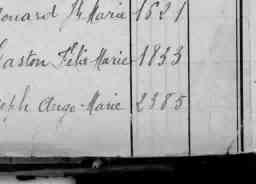 ouard Jh Marie 1621
Gaston Félix Marie 1833
seph Ange-Marie 2385